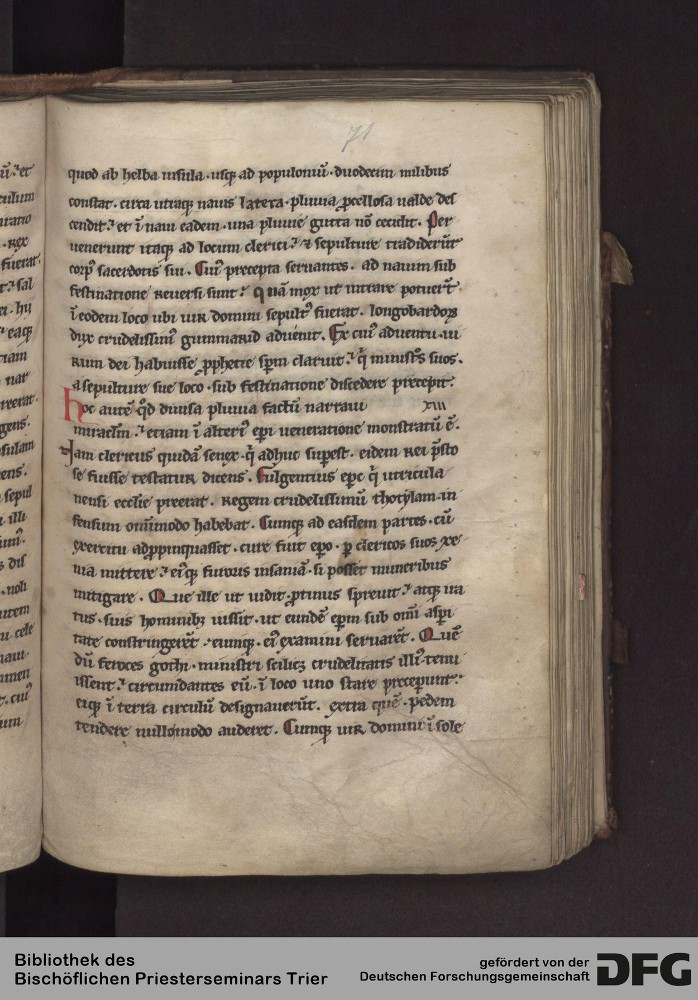 71
quod ab helba insula · usq; ad populoniū · duodecim milibus
constat · circa utraq; nauis latera · pluuia ꝓcellosa ualde des
cendit · et ī naui eadem · una pluuie gutta nō cecidit . Per
uenerunt itaq; ad locum clerici · ⁊ sepulture tradiderūt
corpꝰ sacerdotis sui . Cuiꝰ precepta seruantes . ad nauim sub
festinatione reuersi sunt · quā mox ut intrare potuert̄ ·
ī eodem loco ubi uir domini sepultꝰ fuerat . longobardoꝝ
dux crudelissimꝰ gummarid aduenit . Ex cuiꝰ aduentu · ui
rum dei habuisse ꝓphetie sp̄m claruit · q̄ ministros suos .
a sepulture sue loco · sub festinatione discedere precepit ·
Hoc autē qd̄ diuisa pluuia factū narraui XIII
miraclm̄ · etiam ī alteriꝰ ep̄i ueneratione monstratū ē .
Nam clericus quidā senex · q̄ adhuc supest . eidem rei p̄sto
se fuisse testatur dicens . Fulgentius epc̄ q̄ utricula
nensi ecclie preerat . regem crudelissimū thotylam · in
fensum omīmodo habebat . Cumq; ad easdem partes · cū
exercitu adꝓpinquasset · cure fuit ep̄o · ꝑ clericos suos xe
nia mittere · eiq; furoris insaniā · si posset muneribus
mitigare . Que ille ut uidit · ꝓtinus spreuit · atq; ira
tus · suis hominib; iussit · ut eundē ep̄m sub om̄i asꝑi
tate constringeret̄ · eumq; · eiꝰ examini seruaret̄ . Quē
dū feroces gothi · ministri scilic; crudelitatis illiꝰ tenu
issent · circumdantes eū · ī loco uno stare preceperunt ·
eiq; ī terra circulū designauerūt . extra quē · pedem
tendere nullomodo auderet . Cumq; uir domini ī sole
Bibliothek des
Bischöflichen Priesterseminars Trier
gefördert von der
Deutschen Forschungsgemeinschaft
DFG